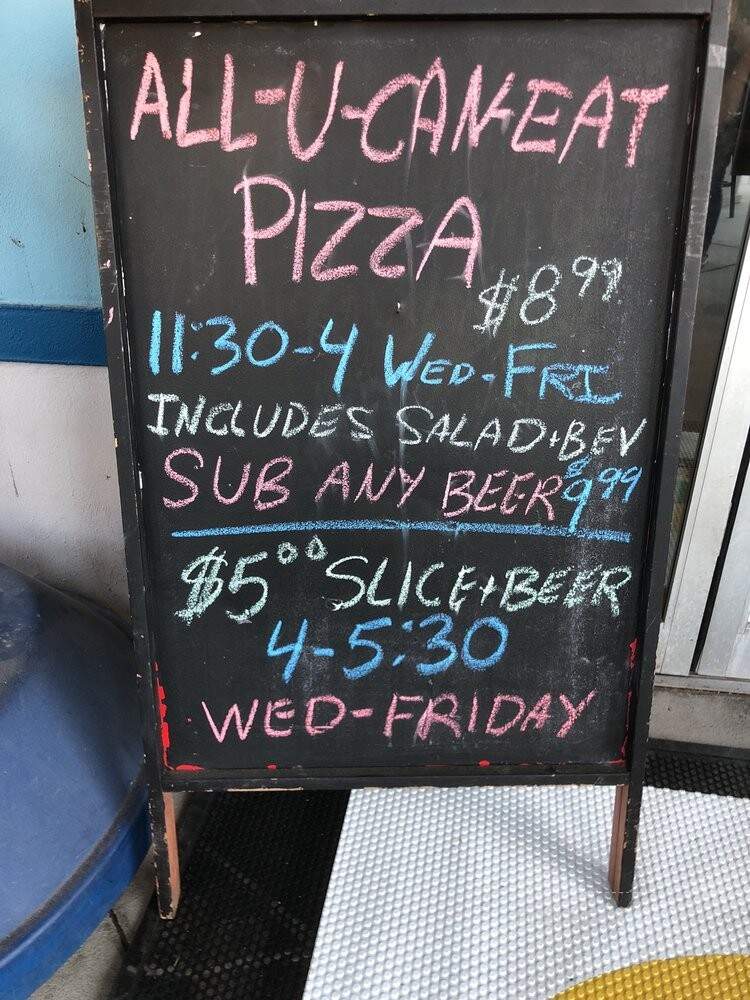 ALL-U-CAN-EAT
PIZZA
$8.99
11:30-4 WED-FRI
INCLUDES SALAD+BEV
SUB ANY BEER $9.99
$5.00 SLICE+BEER
4-5:30
WED-FRIDAY